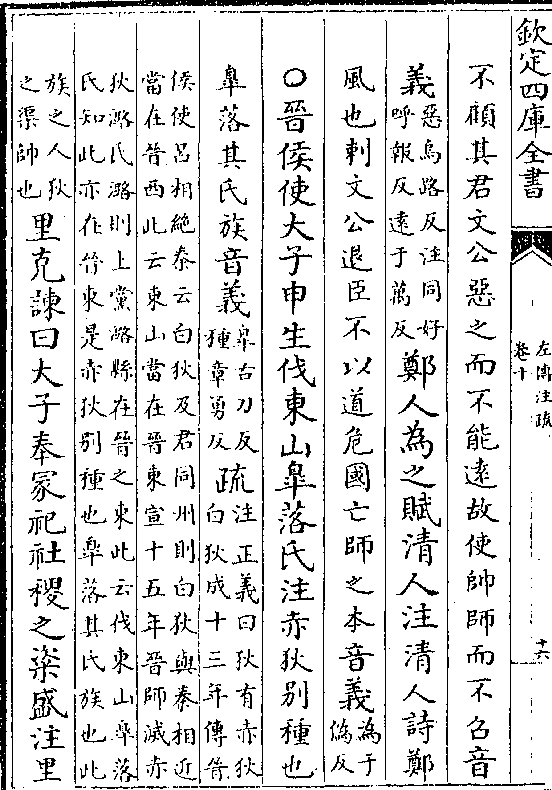 欽定四庫全書
左傳注疏
卷十
十六
不顧其君文公惡之而不能逺故使帥師而不召音
義
惡烏路反注同好
呼報反逺于萬反
鄭人為之賦清人注清人詩鄭
風也刺文公退臣不以道危國亡師之本音義
為于
偽反
○晉侯使大子申生伐東山臯落氏注赤狄別種也
臯落其氏族音義
臯古刀反
種章勇反
疏
注正義曰狄有赤狄
白狄成十三年傳晉
侯使吕相絶秦云白狄及君同州則白狄與秦相近
當在晉西此云東山當在晉東宣十五年晉師滅赤
狄潞氏潞則上黨潞縣在晉之東此云伐東山臯落
氏知此亦在晉東是赤狄別種也臯落其氏族也此
族之人狄
之渠帥也
里克諫曰大子奉冢祀社稷之粢盛注里